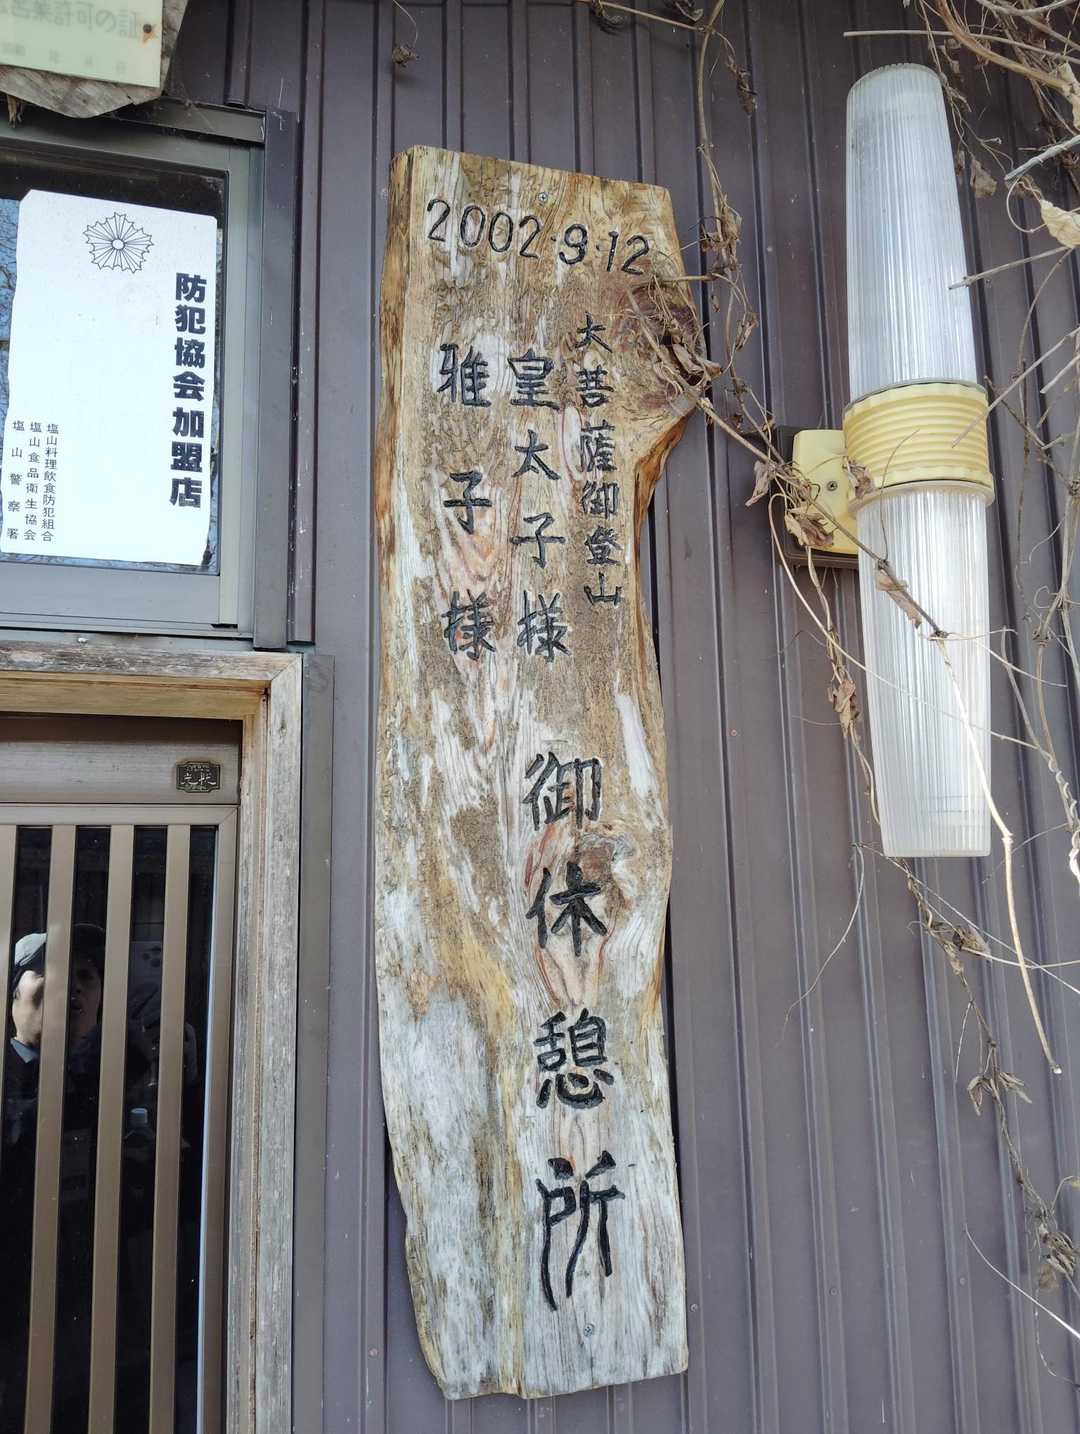 営業許可の証
2002・9・12
大菩薩御登山
皇太子様
雅子様
御休憩所
防犯協会加盟店
塩山料理飲食防犯組合
塩山食品衛生協会
塩山警察署